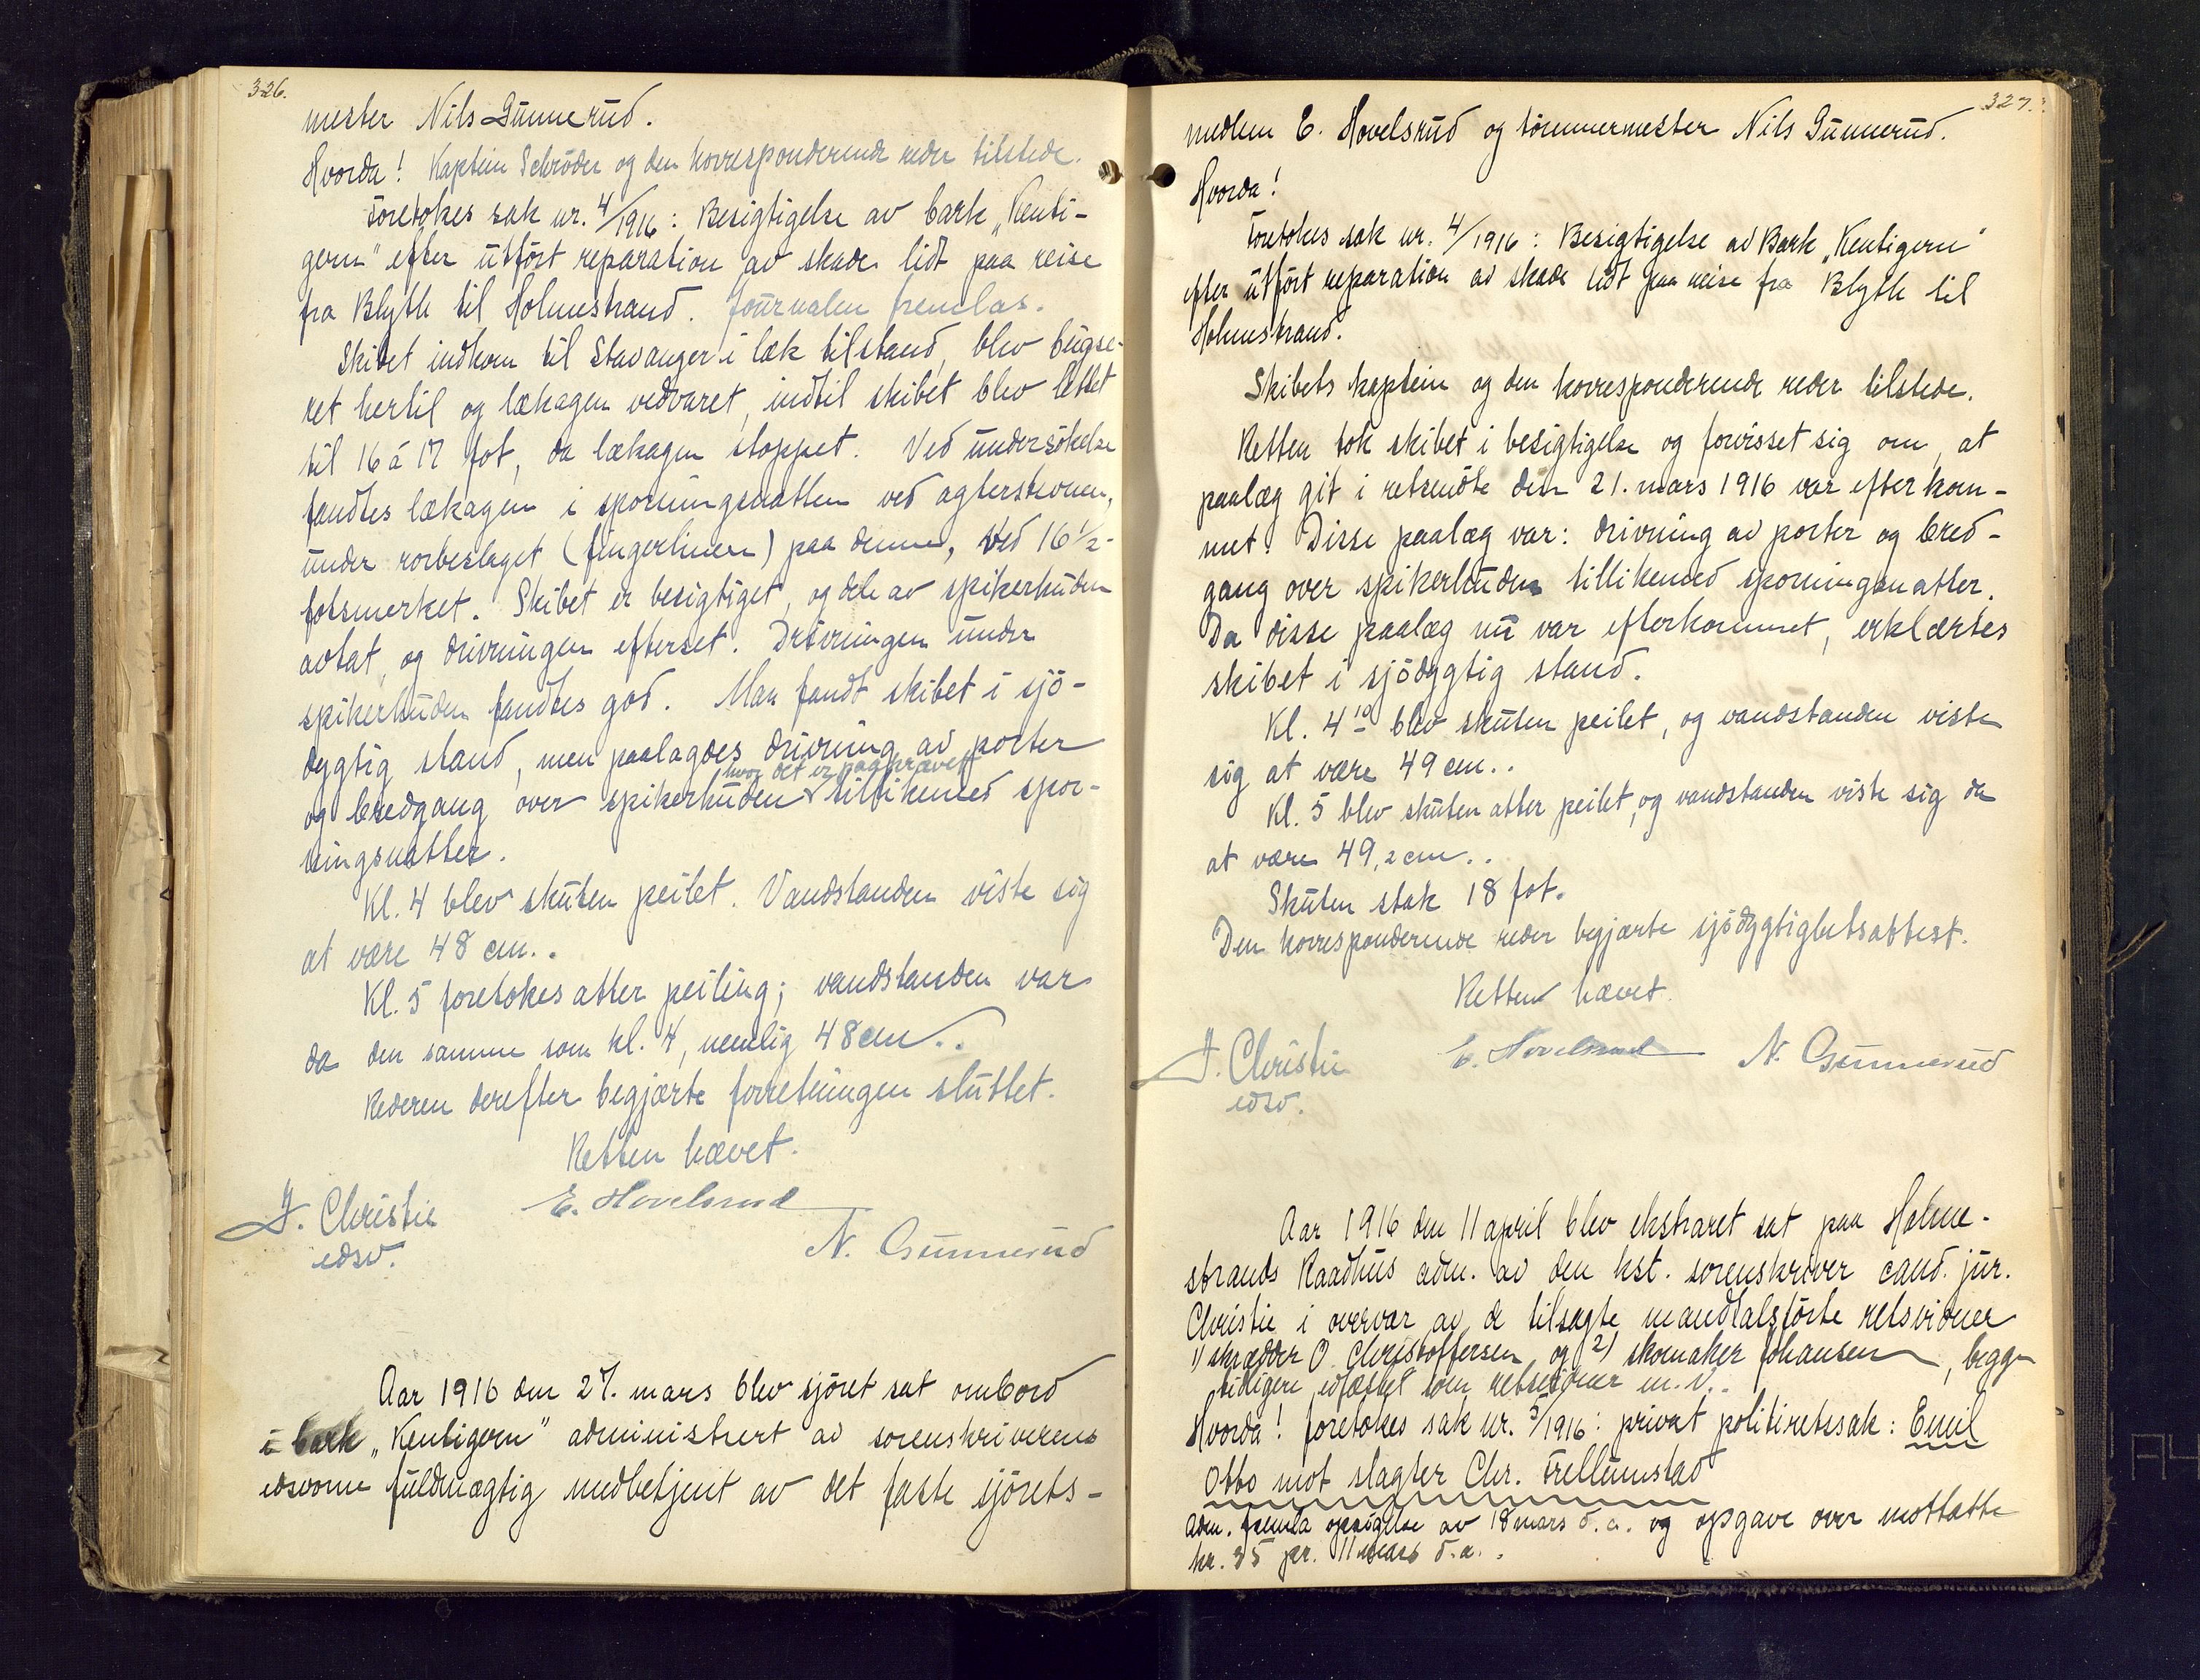 326.
mester Nils Gunnerud.
Hvorda! Kaptein Schröder og den korresponderende reder tilstede.
Foretokes sak nr. 4/1916: Besigtigelse av bark „Kenti-
gern" efter utført reparation av skade lidt paa reise
fra Blyth til Holmestrand. Journalen fremlas.
Skibet indkom til Stavanger i læk tilstand, blev bugse-
ret hertil og lækagen vedvaret, indtil skibet blev lettet
til 16 à 17 fot, da lækagen stoppet. Ved undersökelse
fandtes lækagen i sporningsnatten ved agterstevnen,
under rorbeslaget (fingerlinen) paa denne, ved 16 1/2-
fotsmerket. Skibet er besigtiget, og dele av spikerhuden
avtat, og drivningen efterset. Drivningen under
spikerhuden fandtes god. Man fandt skibet i sjö-
dygtig stand, men paalagdes drivning av porter
hvor det er paaprøvet
og bredgang over spikerhuden tillikemed spor-
ningsnatter.
Kl. 4 blev skuten peilet. Vandstanden viste sig
at være 48 cm..
Kl. 5 foretokes atter peiling; vandstanden var
da den samme som kl. 4, nemlig 48 cm..
Rederen derefter begjærte forretningen sluttet.
Retten hævet.
J. Christie E. Hovelsrud
edsv. N. Gunnerud
Aar 1916 den 27. mars blev sjöret sat ombord
i bark „Kentigern" administrert av sorenskriverens
edsvorne fuldmægtig medbetjent av det faste sjörets-
327.
medlem E. Hovelsrud og tömmermester Nils Gunnerud.
Hvorda!
Foretokes sak nr. 4/1916: Besigtigelse av Bark „Kentigern"
efter utført reparation av skade lidt paa reise fra Blyth til
Holmestrand.
Skibets kaptein og den korresponderende reder tilstede.
Retten tok skibet i besigtigelse og forvisset sig om, at
paalæg git i retsmöte den 21. mars 1916 var efterkom-
met. Disse paalæg var: drivning av porter og bred-
gang over spikerhuden tillikemed sporningsnatter.
Da disse paalæg nu var efterkommet, erklærtes
skibet i sjödygtig stand.
Kl. 4 10 blev skuten peilet, og vandstanden viste
sig at være 49 cm..
Kl. 5 blev skuten atter peilet, og vandstanden viste sig da
at være 49,2 cm..
Skuten stak 18 fot.
Den korresponderende reder begjærte sjödygtighetsattest.
Retten hævet.
J. Christie E. Hovelsrud N. Gunnerud
edsv.
Aar 1916 den 11 april blev ekstraret sat paa Holme-
strands Raadhus adm. av den kst. sorenskriver cand. jur.
Christie i overvær av de tilsagte mandtalsförte retsvidner
1) skrædder O. Christoffersen og 2) skomaker Johansen, begge
tidligere edfæstet som retsvidner m. v..
Hvorda! foretokes sak nr. 5/1916: privat politiretssak: Emil
Otto mot slagter Chr. Trellumstad
Adm. fremla opsigelse av 18 mars d. a. og opgave over mottatte
kr. 35 pr. 11 mars d. a..